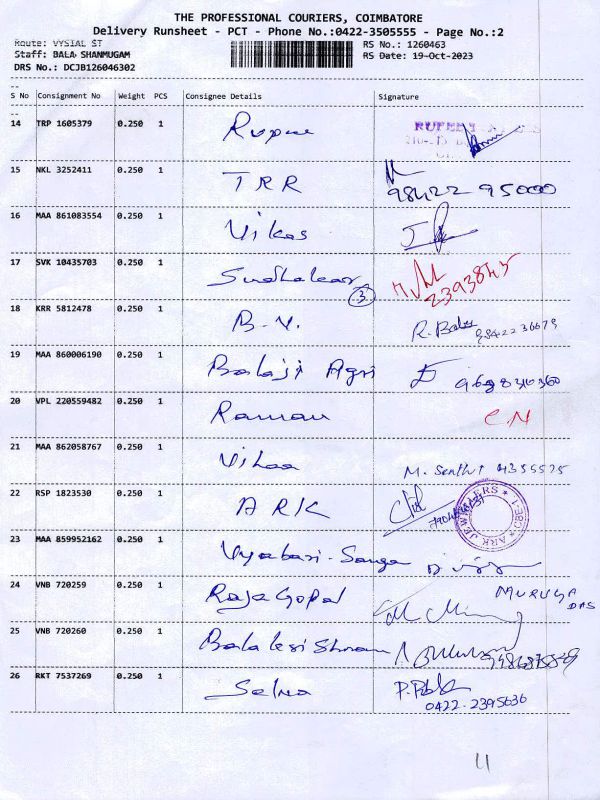 THE PROFESSIONAL COURIERS, COIMBATORE
Delivery Runsheet - PCT - Phone No.:0422-3505555 - Page No.:2
Route: VYSIAL ST RS No.: 1260463
Staff: BALA SHANMUGAM RS Date: 19-Oct-2023
DRS No.: DCJB126046302
S No Consignment No Weight PCS Consignee Details Signature
14 TRP 1605379 0.250 1
15 NKL 3252411 0.250 1 TRR 98422 95000
16 MAA 861083554 0.250 1 Vikas
17 SVK 10435703 0.250 1 Sudhakar 3 2393845
18 KRR 5812478 0.250 1 B.V. R. Babu
19 MAA 860006190 0.250 1 Balaji Agri
20 VPL 220559482 0.250 1 Raman
21 MAA 862058767 0.250 1 M. Senthil 4355525
22 RSP 1823530 0.250 1 ARK ARK JEWELLERS
23 MAA 859952162 0.250 1 Vyabari Sanga
24 VNB 720259 0.250 1 Raja Gopal
25 VNB 720260 0.250 1
26 RKT 7537269 0.250 1 Selva 0422-2395636
11